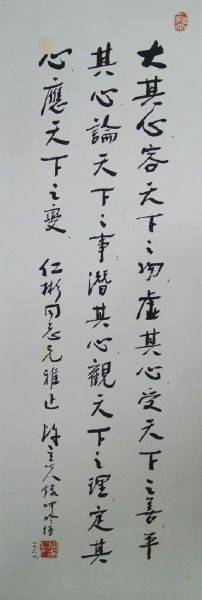 大其心容天下之物虚其心受天下之善平
其心論天下之事潛其心觀天下之理定其
心應天下之變 仁彬同志兄雅正